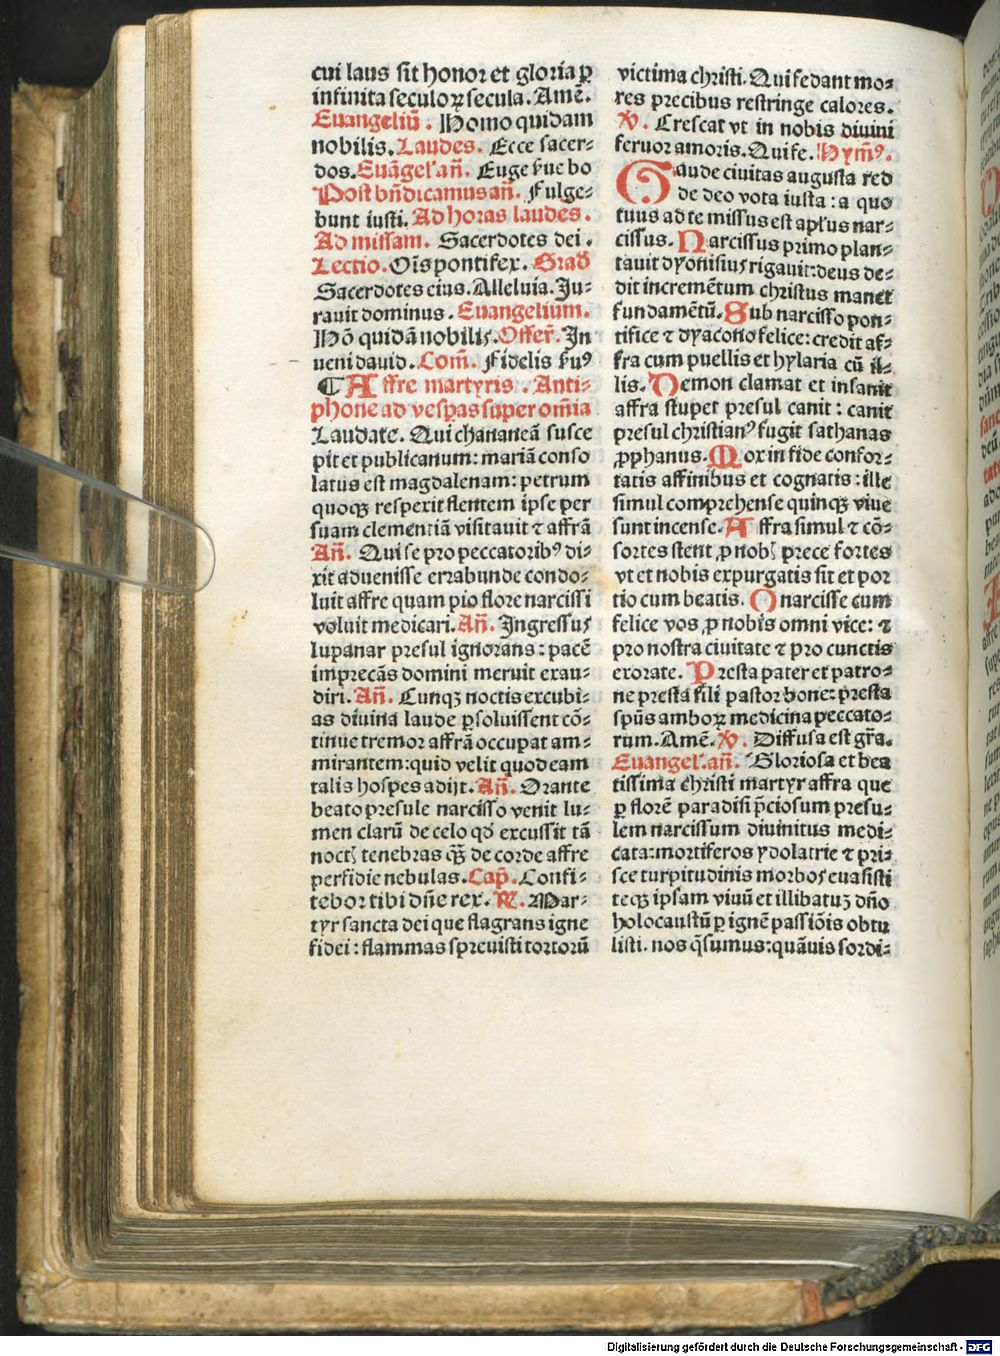 cui laus sit honor et gloria ꝑ
infinita seculoꝝ secula. Amē.
Euangeliū. Homo quidam
nobilis. Laudes. Ecce sacer⸗
dos. Euāgel'. añ. Euge ẜue bo
Post bñdicamus añ. Fulge⸗
bunt iusti. Ad horas laudes.
Ad missam. Sacerdotes dei.
Lectio. Oīs pontifex. Grad̄
Sacerdotes eius. Alleluia. Ju⸗
rauit dominus. Euangelium.
Hō quidā nobilis. Offer̄. In
ueni dauid. Com̄. Fidelis ẜuꝰ
⸿ Affre martyris. Anti⸗
phone ad vesꝑas super om̄ia
Laudate. Qui chananeā susce
pit et publicanum: mariā conso
latus est magdalenam: petrum
quoqꝫ respexit flentem ipse per
suam clementiā visitauit ⁊ affrā
Añ. Qui se pro peccatoribꝰ di⸗
xit aduenisse errabunde condo⸗
luit affre quam pio flore narcissi
voluit medicari. Añ. Ingressus
lupanar presul ignorans: pacē
imprecās domini meruit exau⸗
diri. Añ. Cunqꝫ noctis excubi⸗
as diuina laude ꝑsoluissent cō⸗
tinue tremor affrā occupat am⸗
mirantem: quid velit quod eam
talis hospes adijt. Añ. Orante
beato presule narcisso venit lu⸗
men clarū de celo qđ excussit tā
noctꝭ tenebras qꝫ̄ de corde affre
perfidie nebulas. Cap̄. Confi⸗
tebor tibi dñe rex. ℟. Mar⸗
tyr sancta dei que flagrans igne
fidei: flammas spreuisti tortorū
victima christi. Qui fedant mo⸗
res precibus restringe calores.
℣. Crescat vt in nobis diuini
feruor amoris. Qui fe. Hymꝰ.
Gaude ciuitas augusta red
de deo vota iusta: a quo
tuus ad te missus est apl'us nar⸗
cissus. Narcissus primo plan⸗
tauit dyonisius rigauit: deus de⸗
dit incremētum christus manet
fundamētū. Sub narcisso pon⸗
tifice ⁊ dyacono felice: credit af⸗
fra cum puellis et hylaria cū il⸗
lis. Demon clamat et insanit
affra stupet presul canit: canit
presul christianꝰ fugit sathanas
ꝓphanus. Mox in fide confor⸗
tatis affinibus et cognatis: ille
simul comprehense quinqꝫ viue
sunt incense. Affra simul ⁊ cō⸗
sortes stent ꝓ nobꝭ prece fortes
vt et nobis expurgatis sit et por
tio cum beatis. O narcisse cum
felice vos ꝓ nobis omni vice: ⁊
pro nostra ciuitate ⁊ pro cunctis
exorate. Presta pater et patro⸗
ne presta fili pastor bone: presta
spūs amboꝝ medicina peccato⸗
rum. Amē. ℣. Diffusa est gr̄a.
Euangel'. añ. Gloriosa et bea
tissima christi martyr affra que
ꝑ florē paradisi p̄ciosum presu⸗
lem narcissum diuinitus medi⸗
cata: mortiferos ydolatrie ⁊ pri⸗
sce turpitudinis morbos euasisti
teqꝫ ipsam viuū et illibatuꝫ dño
holocaustū ꝑ ignē passiōis obtu
listi. nos q̄sumus: quāuis sordi⸗
Digitalisierung gefördert durch die Deutsche Forschungsgemeinschaft - DFG